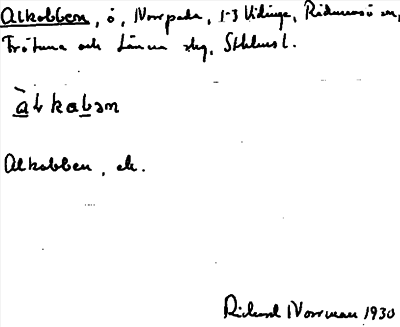 Alkobben, ö, Norrpada, 1-3 Vidinge, Rådmansö sn,
Frötuna och Länna skg, Sthlms l.
àlkabən
Alkobben, ek.
Rickard Norrman 1930